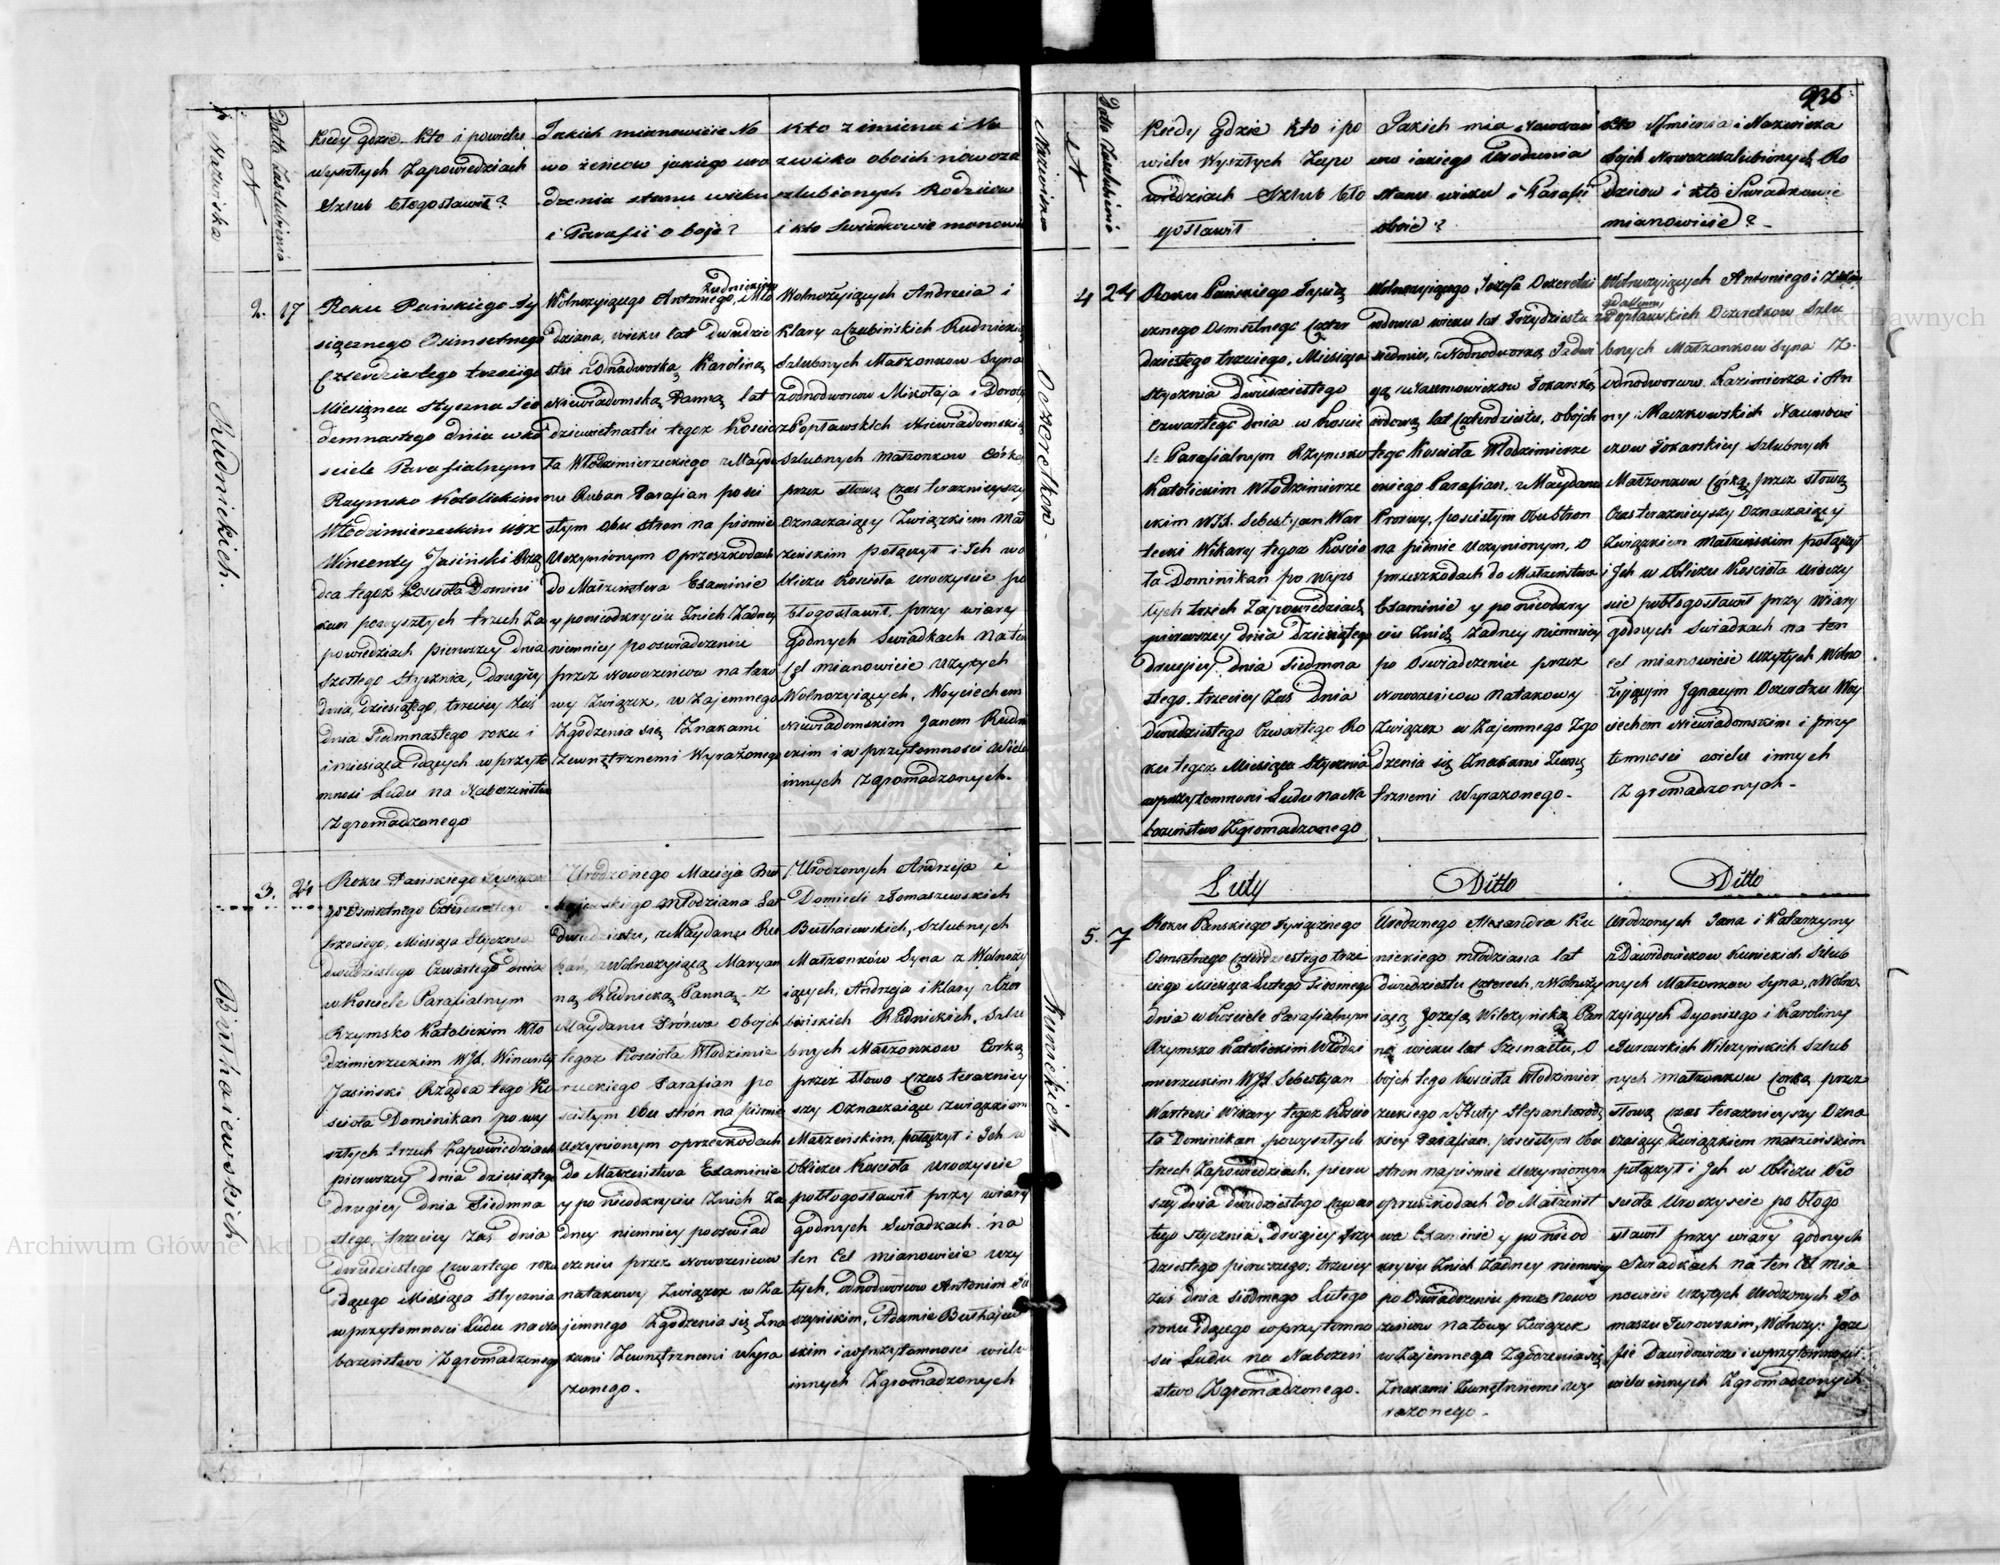 Nazwiska
N
Datta Zaslubienia
Kiedy gdzie kto i powielu
wyszłych Zapowiedziach
Szlub błogosławił?
Jakich mianowicie No
wo żeńcow jakiego uro
dzenia stanu wieku
i Parafii oboje?
Kto z imienia i Na
zwiska oboich nowoza
szlubionych Rodzicow
i kto Swiadkowie
Rudnickich
2. 17
Roku Pańskiego Ty
siącznego Osimsetnego
Czterdziestego trzeciego
Miesiąca Stycznia Sie
demnastego dnia w ko
sciele Parafialnym
Rzymsko Katolickim
Włodzimierzeckim
Wincenty Jasiński Rzą
dca tegoż Koscioła Domini
kan powyszłych trzech Za
powiedziach pierwszey dnia
szostego Stycznia, drugiey
dnia dziesiątego, trzeciey zaś
dnia Siedmnastego roku i
miesiąca idących w przyto
mnosci Ludu na Nabożeństwo
Zgromadzonego
Rudnickiego
Wolnożyiącego Antoniego, Mło
dziana, wieku lat Dwudzie
stu z Odnodworką Karoliną
Niewiadomską Panną lat
dziewietnastu tegoż Koscio
ła Włodzimierzeckiego z Mayda
nu Ruban Parafian posci
słym obu stron na pismie
Uczynionym o przeszkodach
do Małżeństwa Examinie
y poniodkryciu Znich Żadney
niemniey pooswiadczeniu
przez Nowożeńcow na tako
wy Związek w Zajemnego
Zgodzenia się Znakami
Zewnętrznemi Wyrażonego
Wolnożyiących Andrzeia i
Klary z Czubińskich Rudnickich
Szlubnych Małżonkow Syna
z odnodworcow Mikołaja i Doroty
z Popławskich Niewiadomskich
Szlubnych Małżonkow Córkę
przez słowa Czas teraznieyszy
Oznaczaiący Związkiem Mał
żeńskim połączył i Ich w o
bliczu Kosciola uroczyscie po
błogosławił przy wiary
Godnych Swiadkach Na ten
Cel mianowicie użytych
Wolnożyiących, Woyciechem
Niewiadomskim Janem Rudni
ckim i w przytomnosci wielu
innych Zgromadzonych.
Buthaiewskich
3. 24
Roku Pańskiego Tysiączne
go Osmsetnego Czterdziestego
trzeciego, Miesiąca Stycznia
dwudziestego Czwartego dnia
w Kosciele Parafialnym
Rzymsko Katolickim Wło
dzimierzeckim WJX. Wincenty
Jasiński Rządca tego Ko
scioła Dominikan po wy
szłych trzech Zapowiedziach
pierwszey dnia dziesiątego
drugiey dnia Siedmna
stego, trzeciey Zaś dnia
dwudziestego Czwartego roku
idącego Miesiąca Stycznia
w przytomnosci Ludu na Na
bożeństwo Zgromadzonego
Urodzonego Macieja
Młodziana Lat
dwudziestu, z Maydanu Ru
ban, z Wolnożyiącą Maryan
ną Rudnicką Panną z
Maydanu Prórwa obojch
tegoż Kosciola Włodzimie
rzeckiego Parafian po
scisłym Obu strón na pismie
uczynionym o przeszkodach
do Małżeństwa Examinie
y po nieodkryciu Znich Ża
dney niemniey pooswiad
czeniu przez Nowożeńcow
natakowy Związek w Za
jemnego Zgodzenia się Zna
kami Zewnętrznemi Wyra
żonego.
Urodzonych Andrzeja i
Domiceli z Tomaszewskich
Buthaiewskich, Szlubnych
Małżonków Syna z Wolnoży
iących, Andrzeja i Klary z Czu
bińskich Rudnickich, Szlu
bnych Małżonkow Corką
przez Słowo Czas teraznie
szy Oznaczaiące Związkiem
Małżeńskim, połączył i Ich w
Obliczu Kosciola Uroczyscie
pobłogosławił przy wiary
godnych Swiadkach na
ten Cel mianowicie uży
tych, odnodworcow Antonim
Adamie Buthajew
skim i w przytomnosci wielu
innych Zgromadzonych
236
Nazwiska
N
Data Zaslubienia
Kiedy gdzie kto i po
wielu Wyszłych Zapo
wiedziach Szlub bło
gosławił
Jakich mia Nowożeń
ców iakiego Urodzenia
stanu wieku i Parafii
oboie?
Kto z Imienia i Nazwiska
oboich Nowozaszlubionych Ro
dzicow i kto Swiadkowie
mianowicie?
Oczeretkow
4 24
Roku Pańskiego Tysią
cznego Osmsetnego Czter
dziestego trzeciego, Miesiąca
Stycznia Dwudziestego
Czwartego dnia w Koscie
le Parafialnym Rzymsko
Katolickim Włodzimierze
ckim WJX. Sebestyan War
tecki Wikary tegoż Koscio
ła Dominikan po Wysz
łych trzech Zapowiedziach
pierwszey dnia Dziesiątego
drugiey dnia Siedmna
stego, trzeciey zaś dnia
Dwudziestego Czwartego Ro
ku tegoż Miesiąca Stycznia
w przytomnosci Ludu na Na
bożeństwo Zgromadzonego
Wolnożyiącego Jozefa Oczeretki
wdowca wieku lat Trzydziestu
siedmiu, z Odnodworką Jadwi
gą z Naumowiczow Tokarską
wdową lat Czterdziestu, obojch
tegoż Kosciola Włodzimierze
ckiego Parafian, z Maydanu
Prorwy, poscisłym Obu stron
na pismie Uczynionym, o
przeszkodach do Małżeństwa
Examinie y po nieodkry
ciu Znich Żadney niemniey
po Oswiadczeniu przez
Nowożeńcow natakowy
Związek w Zajemnego Zgo
dzenia się Znakami Zewnę
trznemi Wyrażonego.
Wolnożyiących Antoniego i
z Popławskich Oczeretkow Szlu
bnych Małżonkow Syna Z
Odnodworcow Kazimierza i An
ny z Maczkowskich Naumowi
czow Tokarskiey Szlubnych
Małżonkow Córką przez słowa
Czas teraznieyszy Oznaczaiący
Związkiem Małżeńskim połączył
i Ich w Obliczu Kosciola uroczy
scie pobłogosławił przy Wiary
godnych Swiadkach na ten
cel mianowicie użytych Wolno
żyjącym Ignacym Oczeretku Woy
ciechem Niewiadomskim i przy
tomnosci wielu innych
Zgromadzonych.
Luty
Ditto
Ditto
Kunickich
5. 7
Roku Pańskiego Tysiącznego
Osmsetnego Czterdziestego trze
ciego Miesiąca Lutego Siodmego
dnia w Kosciele Parafialnym
Rzymsko Katolickim Włodzi
mierzeckim WJX. Sebestyan
Wartecki Wikary tegoż Koscio
ła Dominikan powyszłych
trzech Zapowiedziach, pierw
szy dnia dwudziestego czwar
tego Stycznia, Drugiey Trzy
dziestego pierwszego; trzeciey
zaś dnia Siodmego Lutego
roku Idącego w przytomno
sci Ludu na Nabożeń
stwo Zgromadzonego.
Urodzonego Alexandra Ku
nickiego młodziana lat
dwudziestu czterech, z Wolnoży
iącą Jozefą Wilczyńską Pan
ną wieku lat Szesnastu, o
bojch tego Kosciola Włodzimier
zeckiego z Huty Stepanhorodz
kiey Parafian, poscisłym Obu
stron napismie uczynionym
o przeszkodach do Małżeńst
wa Examinie y po nieod
kryciu Znich Żadney niemniey
po Oswiadczeniu przez Nowo
żeńcow na takowy Związek
w Zajemnego Zgodzenia się
Znakami Zewnętrznemi Wy
rażonego.
Urodzonych Jana i Katarzyny
z Dawidowiczow Kunickich Szlub
nych Małżonkow Syna, z Wolno
żyiących Dyonizego i Karoliny
z Turowskich Wilczyńskich Szlub
nych Małżonkow Corką przez
słowa czas teraznieyszy Ozna
czaiący Związkiem małżeńskim
połączył i Ich w Obliczu Ko
sciola Uroczyscie po błogo
sławił przy wiary godnych
Swiadkach na ten Cel mia
nowicie użytych Urodzonych To
maszu Turowskim, Wolnoży: Joze
fie Dawidowiczu i w przytomnosci
wielu innych Zgromadzonych
Archiwum Główne Akt Dawnych
Archiwum Główne Akt Dawnych